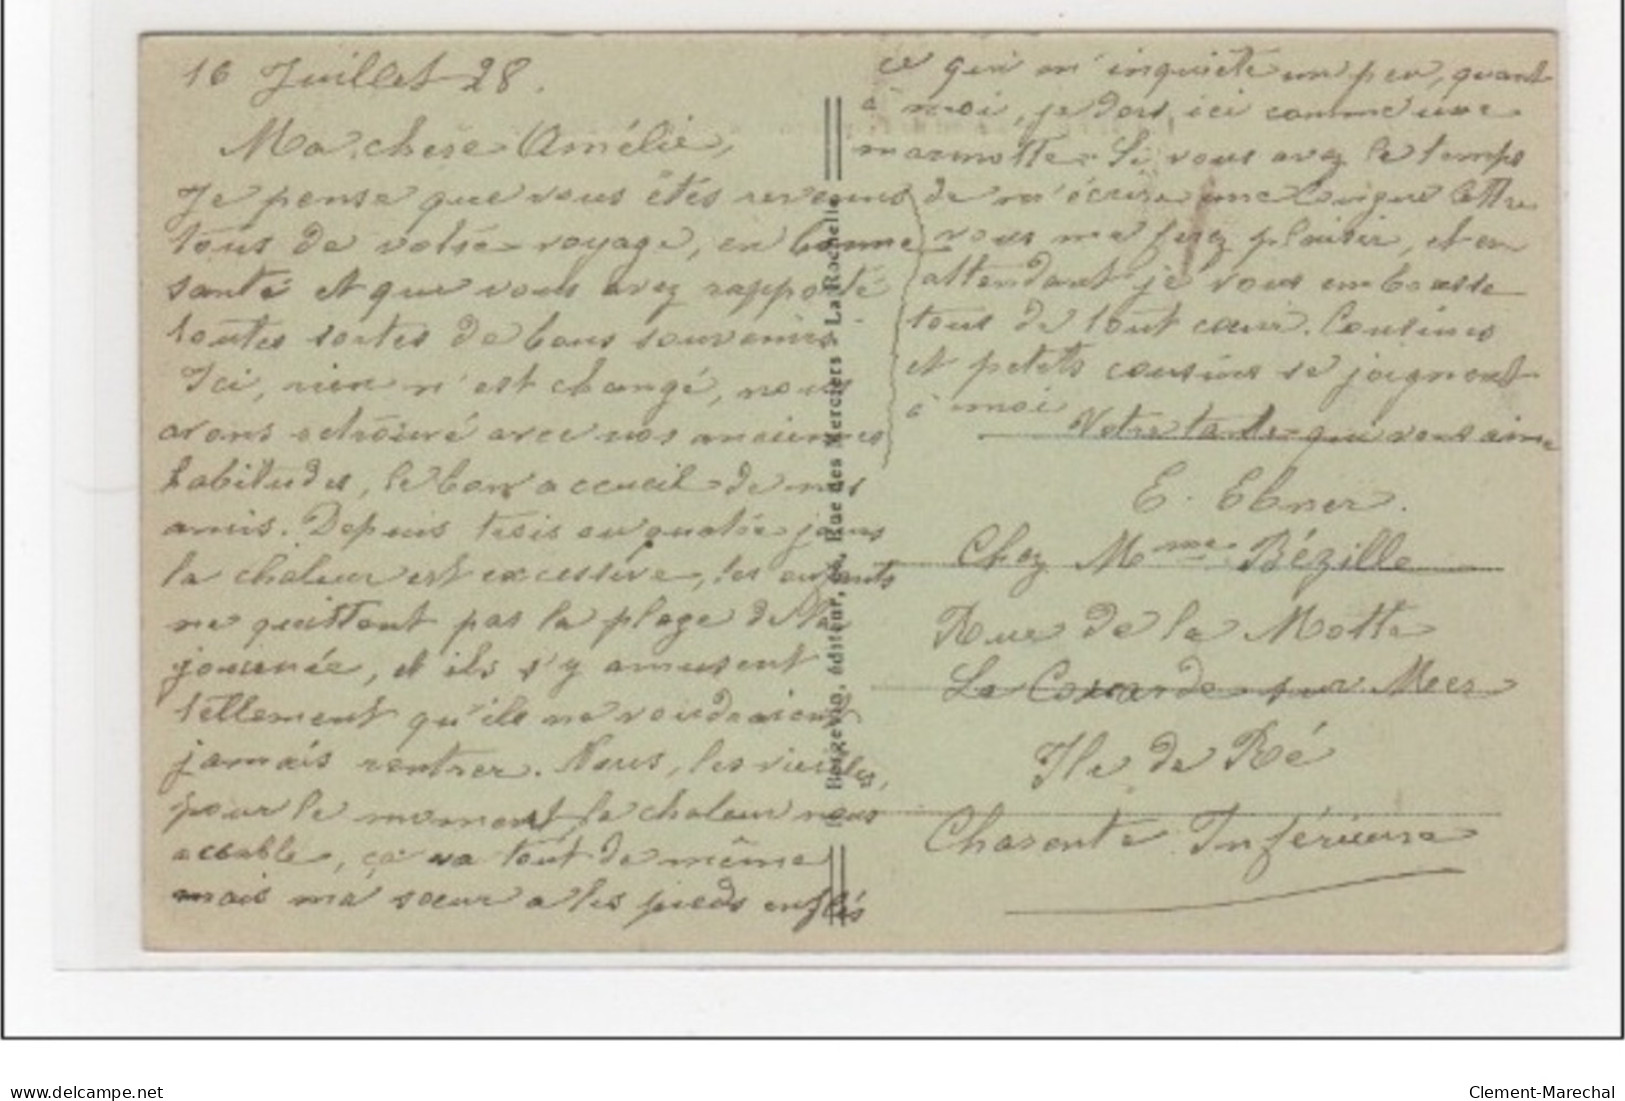 16 Juillet 28.
Ma chere Amélie,
Je pense que vous étés revenus
tous de votre voyage, en bonne
santé et que vous avez rapporté
toutes sortes de bons souvenirs.
Ici, rien n'est changé, nous
avons retrouvé avec nos anciennes
habitudes, le bon accueil de nos
amis. Depuis trois ou quatre jours
la chaleur est excessive, les enfants
ne quittent pas la plage de la
journée, et ils s'y amusent
tellement qu'ils ne voudraient
jamais rentrer. Nous, les vieilles,
pour le moment, la chaleur nous
accable, ça va tout de même
mais ma sœur a les pieds enflés
ce qui m'inquiète un peu, quant
à moi, je dors ici comme une
marmotte. Si vous avez le temps
de m'écrire une longue lettre
vous me ferez plaisir, et en
attendant je vous embrasse
tous de tout cœur. Cousines
et petits cousins se joignent
à moi
Votre tante qui vous aime
E. Ebner.
Chez Mme Bézille
Rue de la Motte
La Couarde sur Mer
Ile de Ré
Charente Inférieure
Bergevin, éditeur, Rue des Merciers La Rochelle
www.delcampe.net
Clement-Marechal